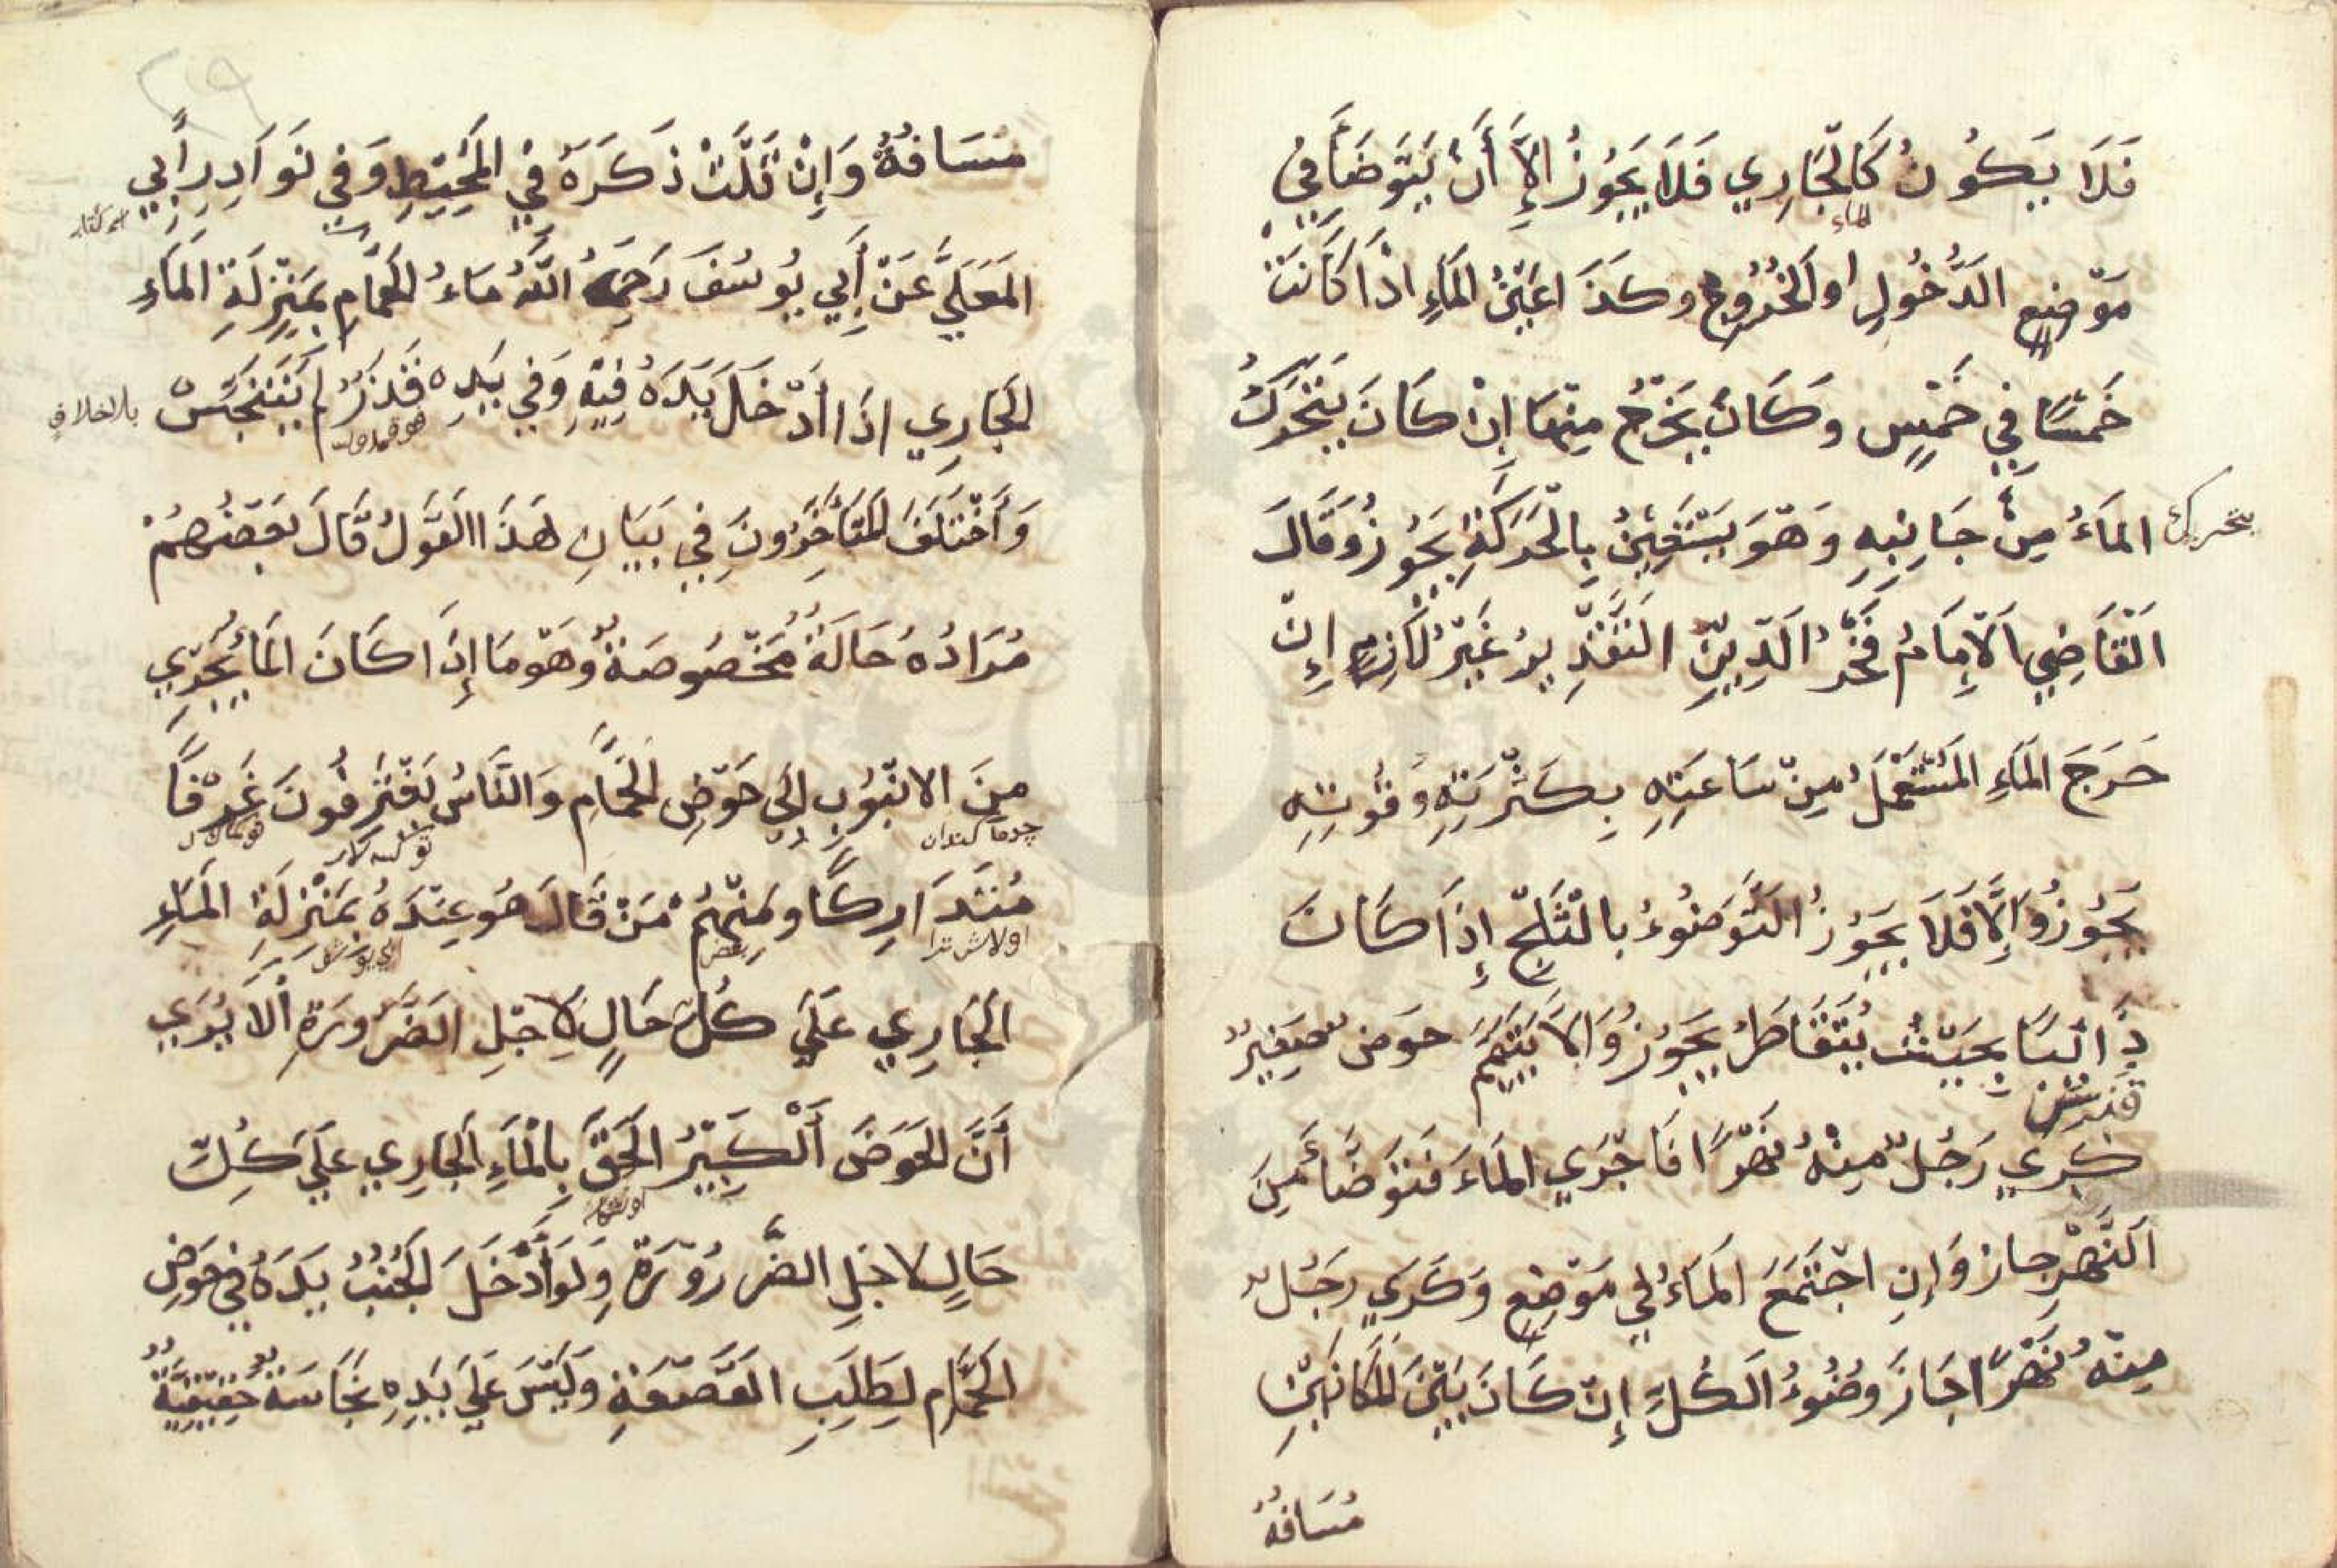 فَلَا يَكُونُ كَالْجَارِي فَلَا يَجُوزُ إِلَّا أَنْ يَتَوَضَّأَ فِي
الماء
مَوْضِعِ الدُّخُولِ او الْخُرُوجِ وكذَا عَيْنُ الْمَاءِ اذَا كَانَتْ
خَمْسًا فِي خَمْسٍ وَكَانَ يَخْرُجُ مِنْهَا إِنْ كَانَ يَتَحَرَّكُ
الْمَاءُ مِنْ جَانِبِهِ وَهْوَ يَسْتَقِينُ بِالْحَرَكَةِ يَجُوزُ وَقَالَ
الْقَاضِي الْاِمَامُ فَخْرُ الدِّينِ التَّقْدِيرُ غَيْرُ لَازِمٍ إِنْ
خَرَجَ الْمَاءِ الْمُسْتَعْمَلُ مِنْ سَاعَتِهِ بِكَثْرَتِهِ وَقُوتِهِ
يَجُوزُ وَإِلَّا فَلَا يَجُوزُ التَّوَضُوءُ بِالثَّلْجِ إِذَا كَانَ
ذَائِبًا بِحَيْثُ يُتَقَاطَرُ يَجُوزُ وَالَّا يَتَيَمَّمُ حوض صَغِيرٌ
كَرَي رَجُلٌ مِنْهُ نَهْرًا فَاجْرَي الْمَاءَ فَتَوَضَّأَ مِنَ
النَّهْرِ جاز وَإِنِ اجْتَمَعَ الْمَاءُ فِي مَوْضِعٍ وَكَرَي رَجُلٌ
مِنْهُ نَهْرًا جَازَ وضُوءُ الْكُلِّ إِنْ كَانَ بَيْنَ الْمَكَانَيْنِ
مَسَافَةٌ
مَسَافَةٌ وَإِنْ قَلَّتْ ذَكَرَهُ فِي الْمُحِيطِ وَفِي نَوَادِرِ أَبِي
الْمَعَلَّي عَنْ أَبِي يُوسُفَ رَحِمَهُ اللَّهُ مَاءُ الْحَمَّامِ بِمَنْزِلَةِ الْمَاءِ
الْجَارِي اذَا أَدْخَلَ يَدَهُ فِيهِ وَفِي يَدِهِ قَذَرٌ لم يَتَنَجَّسْ
بالخلاف
وَأَخْتَلَفَ الْمُتَأَخِّرُونَ فِي بَيَانِ هَذَا الْقَوْلُ قَالَ بَعْضُهُمْ
مُرَادُهُ حَالَةٌ مَخْصُوصَةٌ وَهْوَ مَا إِذَا كَانَ الْمَاءُ يُجْرِي
مِنَ الانْبُوْبِ إِلَى حَوْضِ الْحَمَّامِ وَالنَّاسُ يَغْتَرِفُونَ غَرْفًا
مُتَدَارِكًا ومِنْهُمْ مَنْ قَالَ هُو عِنْدَهُ بِمَنْزِلَةِ الْمَاءِ
الْجَارِي عَلَي كُلِّ حَالٍ لِاجْلِ الضَّرُورَةِ أَلَا يُرَي
أَنَّ الْحَوَضَ الْكَبِيرَ الْحَقَ بِالْمَاءِ الْجَارِي عَلَي كُلِّ
حَالٍ لاجْلِ الضَّرُورَةِ وَلَوْ أَدْخَلَ الْجُنُبُ يَدَهُ فِي حَوْضِ
الْحَمَّامِ لِطَلَبِ الْقَصْعَةِ وَلَيْسَ عَلَي يَدِهِ نَجَاسَةٌ حَقِيقِيَّةٌ